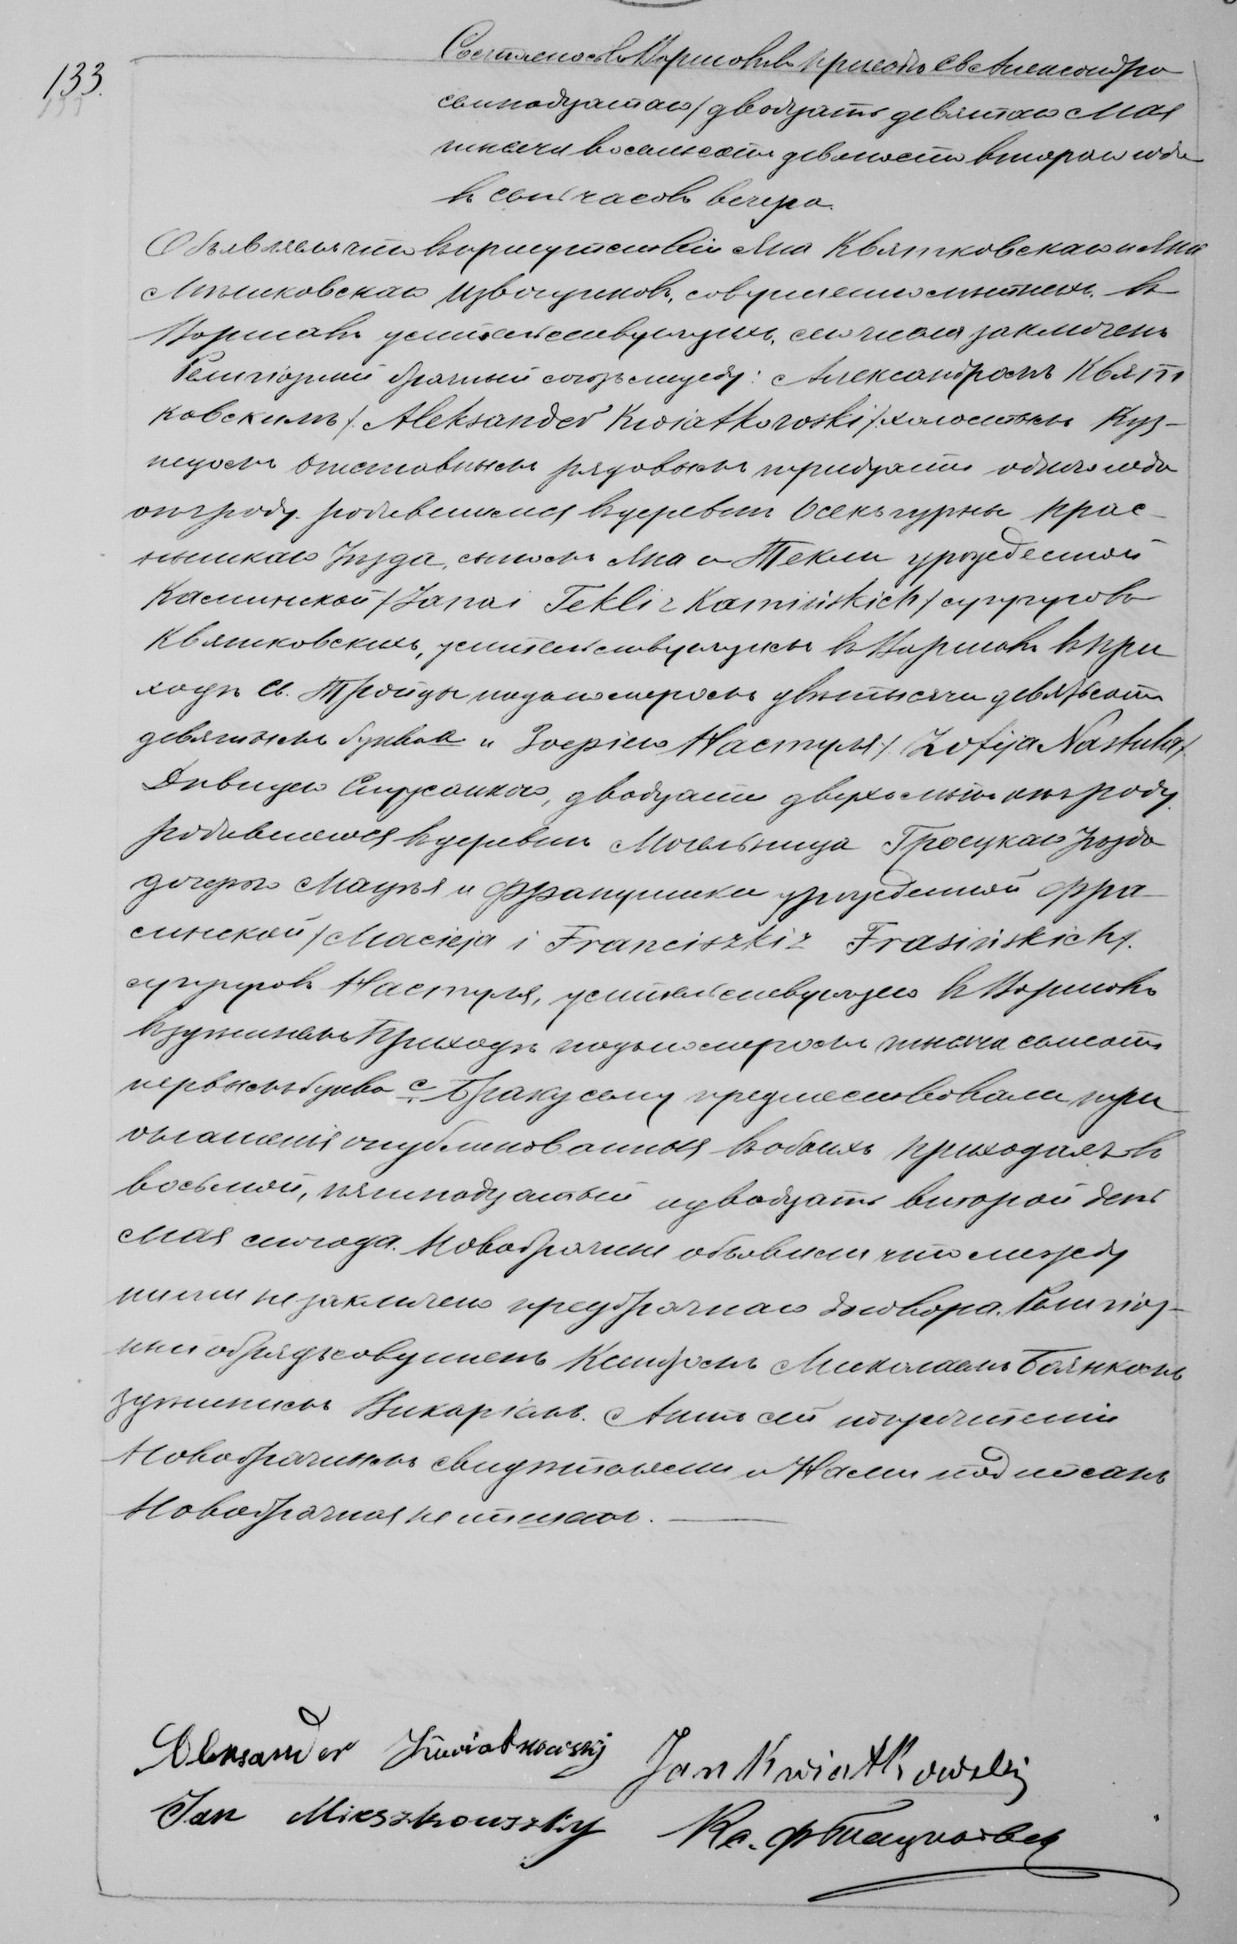 133.
Состоялось въ Варшавѣ въ приходѣ Св Александра
семнадцатаго/двадцать девятаго Мая
тысяча восемьсотъ девяносто втораго года
въ семь часовъ вечера.
Объявляемъ что въ присутствіи Яна Квятковскаго и Яна
Мѣшковскаго извощиковъ, совершеннолѣтнихъ, въ
Варшавѣ жительствующихъ, сего числа заключенъ
Религіозный брачный союзъ между: Александромъ Квят
ковскимъ /Aleksander Kwiatkowski/ холостымъ Куз-
нецомъ отставнымъ рядовымъ тридцати одного года
отъ роду. родившимся въ деревни
нышскаго Уѣзда, сыномъ Яна и Текли урожденной
Каминской /Jana i Tekli z Kamińskich/ супруговъ
Квятковскихъ, жительствующимъ въ Варшавѣ въ при
ходѣ Св. Троицы подъ номеромъ двѣ тысячи девятьсотъ
девятымъ буква а и Зофіею Настуля /Zofija Nastula/
Дѣвицею Служанкою, двадцати двухъ лѣтъ отъ роду.
родившеюся въ деревни Могельница Гроецкаго Уѣзда
дочерью Мацѣя и Францишки урожденной Фра-
синской /Macieja i Franciszki z Frasińskich/.
супруговъ Настуля, жительствующею въ Варшавѣ
въ здѣшнемъ Приходѣ подъ номеромъ тысяча семьсотъ
первымъ буква с Браку сему предшествовали три
оглашенія опубликованныя въ обоихъ приходахъ въ
восьмой, пятнадцатый и двадцать второй день
Мая сего года. Новобрачные объявили что между
ними не заключено предбрачнаго договора. Религіоз-
ный обрядъ совершенъ Ксендзомъ Миколаемъ Боянкомъ
здѣшнимъ Викаріемъ. Актъ сей по прочтеніи
Новобрачнымъ свидѣтелями и Нами подписанъ
Новобрачная не пишетъ.
Aleksander Kwiatkowskij Jan Kwiatkowskij
Jan Mieszkowszky Кс.